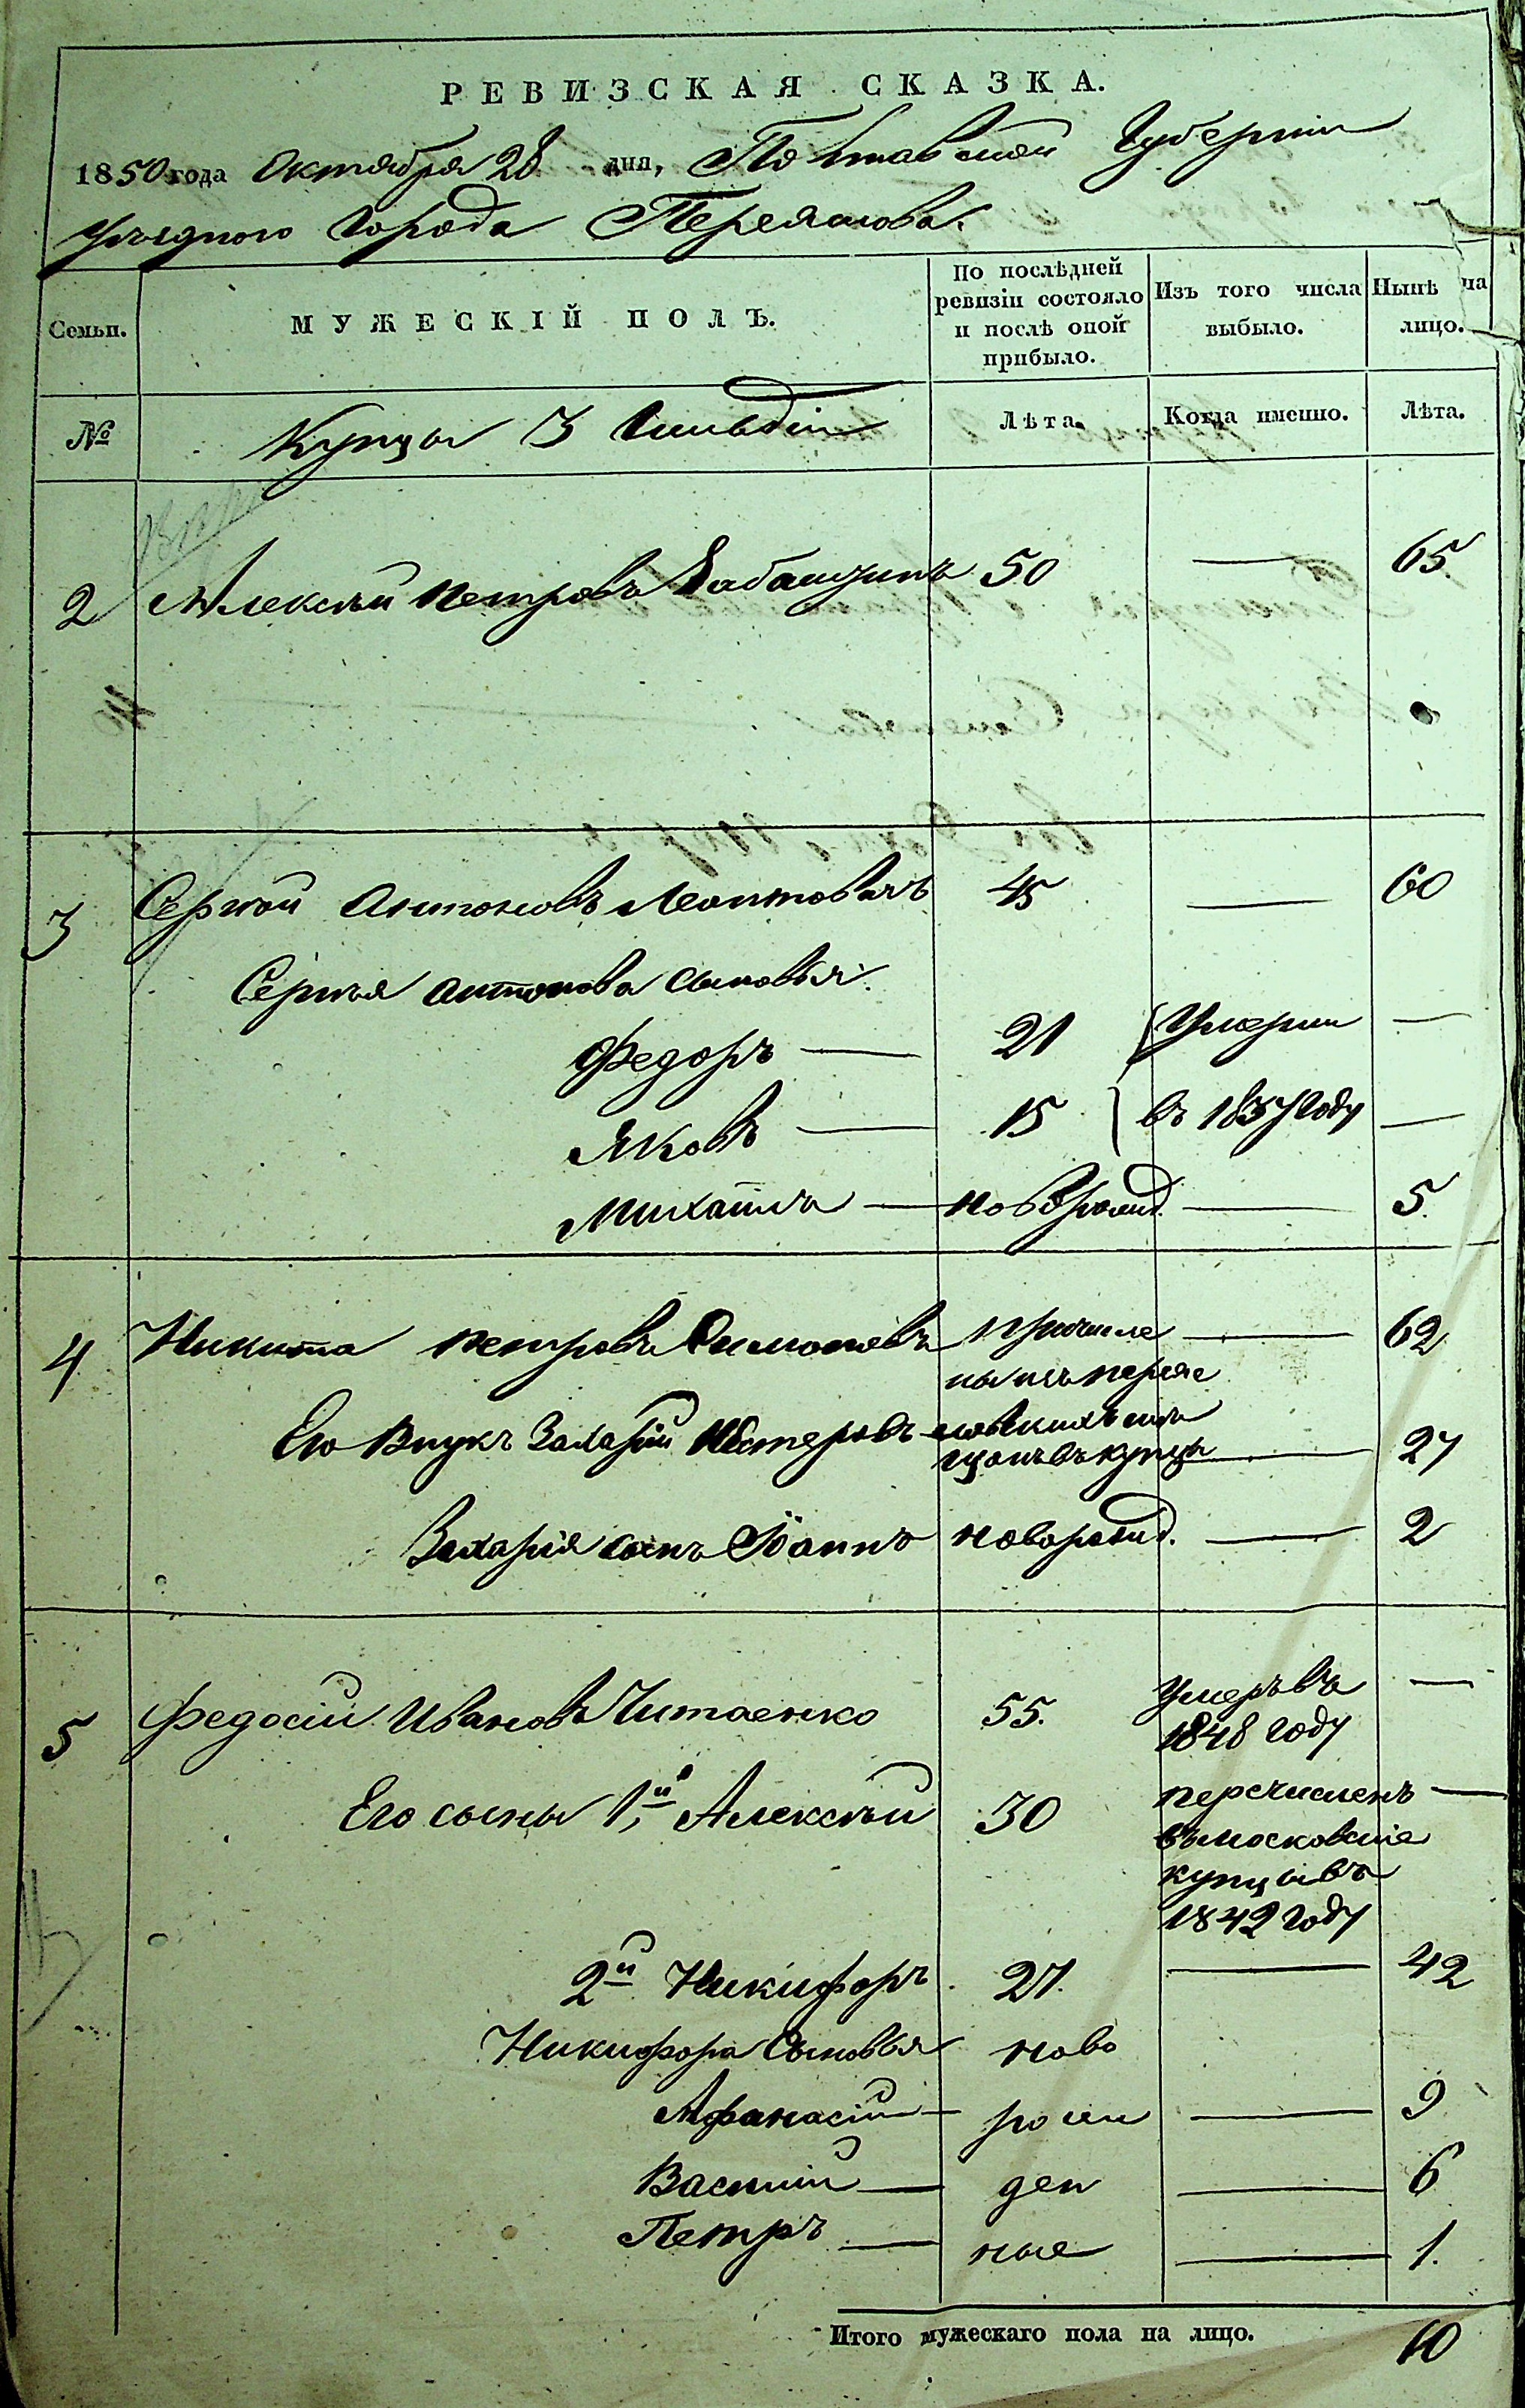 РЕВИЗСКАЯ СКАЗКА.
1850 года Октября 28 дня, Полтавской Губерніи
уѣзднаго Города Переяслова.
Семьи.
МУЖЕСКІЙ ПОЛЪ.
По послѣдней ревизіи состояло и послѣ оной прибыло.
Изъ того числа выбыло.
Нынѣ на лицо.
№
Купцы 3 Гильдіи
Лѣта.
Когда именно.
Лѣта.
2 Алексѣй Петровъ 50 — 65
3 Сергѣй Антоновъ Леонтовичъ 45 — 60
Сергѣя Антонова сыновья:
Федоръ — 21 Умерли —
Яковъ — 15 въ 1837 году —
Михаилъ — новорожд. — 5.
4 Никита Петровъ Симоновъ причисле — 62
ны изъ перяе
Его Внукъ Захарій Нестеровъ словскихъ мѣ
щанъ въ купцы — 27
Захарія сынъ Іоаннъ новорожд. — 2
5 Федосій Ивановъ Читаенко 55. Умеръ въ —
1848 году
Его сыны 1й, Алексѣй 30 перечисленъ —
въ московскіе
купцы въ
1842 году
2й Никифоръ 27. — 42
Никифора Сыновья ново
Афанасій — рож — 9
Василій — ден — 6
Петръ — ные — 1.
Итого мужескаго пола на лицо. 10